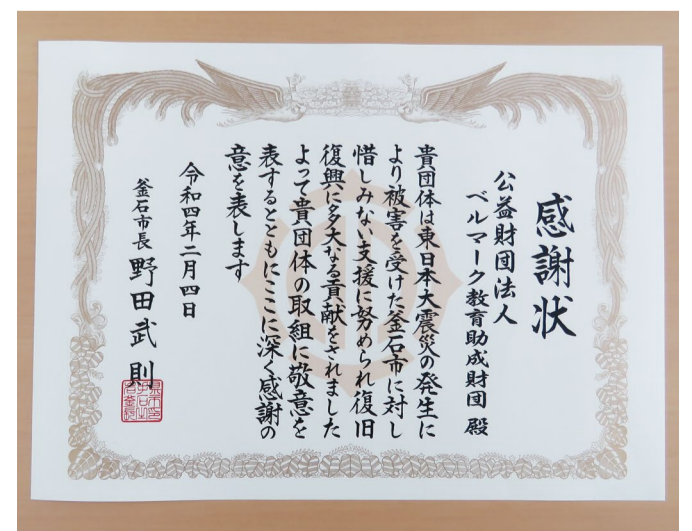 感謝状
公益財団法人
ベルマーク教育助成財団 殿
貴団体は東日本大震災の発生に
より被害を受けた釜石市に対し
惜しみない支援に努められ復旧
復興に多大なる貢献をされました
よって貴団体の取組に敬意を
表するとともにここに深く感謝の
意を表します
令和四年二月四日
釜石市長 野田武則